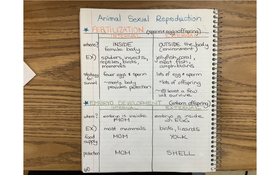 Animal Sexual Reproduction
* FERTILIZATION (sperm + egg = offspring)
where? INSIDE female body OUTSIDE the body (environment)
EX) spiders, insects, reptiles, birds, mammals jellyfish, coral, most fish, amphibians
fewer eggs & sperm lots of eggs + sperm
mom's body provides protection lots of offspring
at least a few will survive
* EMBRYO DEVELOPMENT (unborn offspring)
where? embryo is inside MOM embryo is inside of EGG
EX) most mammals birds, lizards
food supply MOM YOLK
protection MOM SHELL